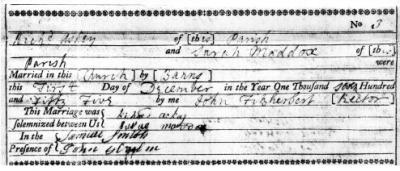 No 3
Richd Astey of [this] Parish
and Sarah Maddox of [this]
Parish were
Married in this [Church] by [Banns]
this First Day of December in the Year One Thousand Seven Hundred
and Fifty Five by me John Fitzherbert [Rector]
This Marriage was
Solemnized between Us
In the Samuel Smith
Presence of John